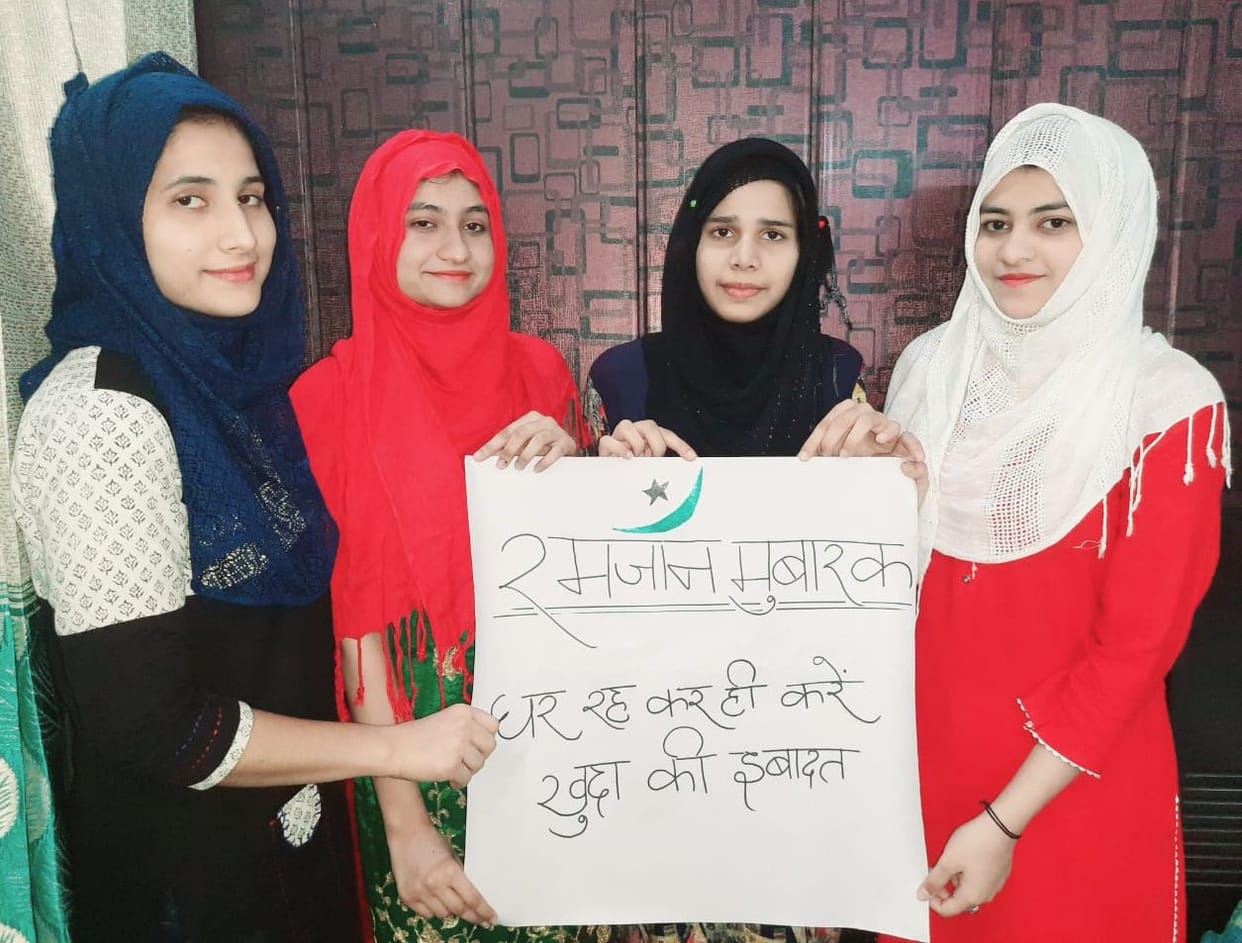 रमजान मुबारक
घर रह कर ही करें
खुदा की इबादत